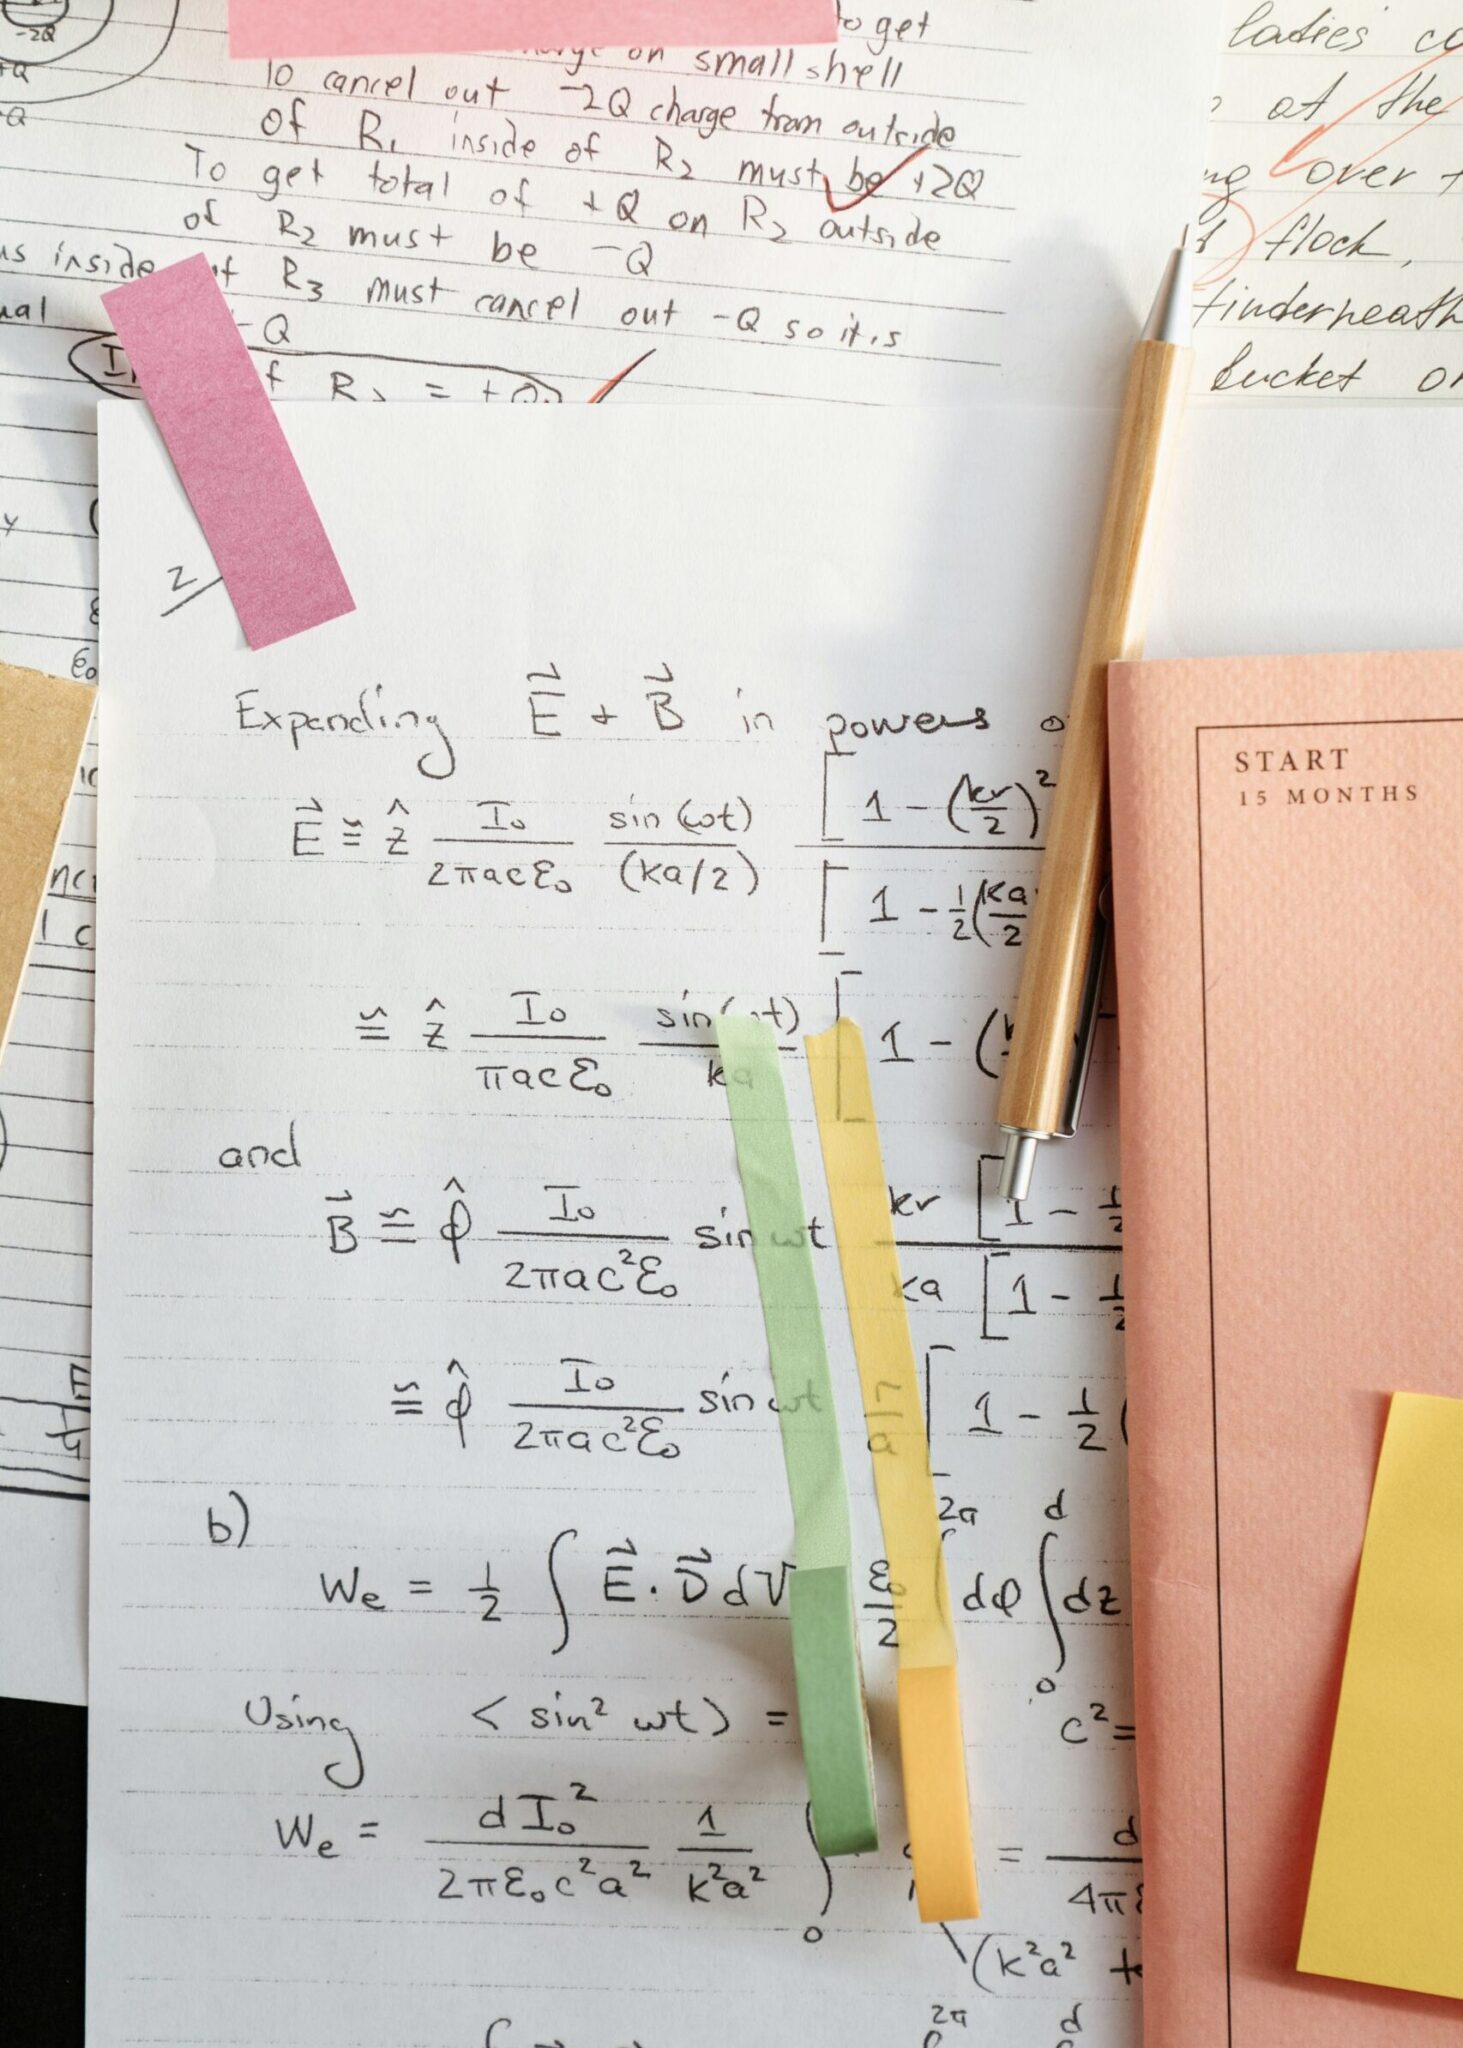 -2Q
+Q
-Q
to get
charge on small shell
to cancel out -2Q charge from outside
of R₁ inside of R₂ must be +2Q
To get total of +Q on R₂ outside
of R₂ must be -Q
us inside of R₃ must cancel out -Q so it is
-Q
R = +Q
ladies
at the
over
flock,
bucket
2
Expanding E⃗ + B⃗ in powers
E⃗ ≅ ẑ I₀/(2πacε₀) sin(ωt)/(ka/2) [1 - (kr/2)² / [1 - ½(ka/2
≅ ẑ I₀/(πacε₀) sin(ωt)/ka [1 - (
and
B⃗ ≅ φ̂ I₀/(2πac²ε₀) sin ωt kr [1 - ½ / ka [1 - ½
≅ φ̂ I₀/(2πac²ε₀) sin ωt r/a [1 - ½ (
b)
We = ½ ∫ E⃗·D⃗ dV ε₀/2 ∫ 2π dφ ∫₀ᵈ dz
Using < sin² ωt > = c² =
We = dI₀²/(2πε₀c²a²) 1/(k²a²) ∫₀ = d/4πε
(k²a²
2π d
START
15 MONTHS